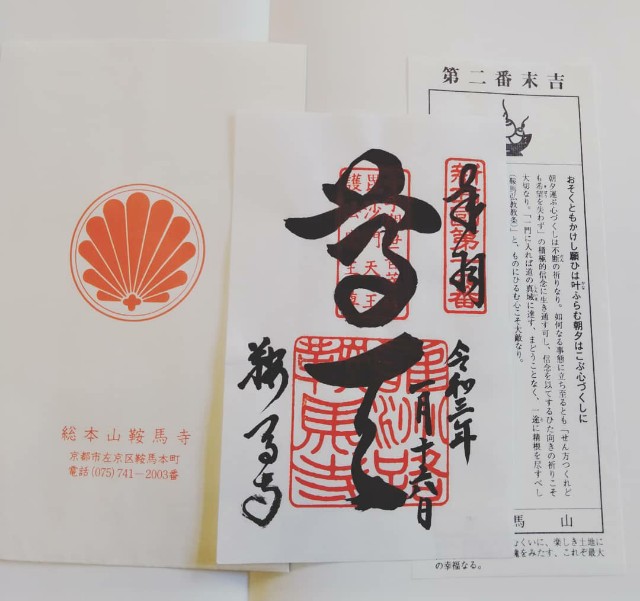 総本山鞍馬寺
京都市左京区鞍馬本町
電話(075)741―2003番
尊天
鞍馬寺
令和三年
一月十六日
鞍馬寺
第二番末吉
おそくともかけし願ひは叶ふらむ朝夕はこぶ心づくしに
朝夕運ぶ心づくしは不断の祈りなり。如何なる事態に立ち至るとも「せん方つくれど
も希望を失わず」の積極的信念に生き通す可し、信念を以てするひた向きの祈りこそ
大切なり。「一門に入れば道の真域に達す、まどうことなく、一途に精根を尽すべし
」と、ものにひるむ心こそ大敵なり。
馬山
くいに、楽しき土地に
をみたす、これぞ最大
の幸福なる。